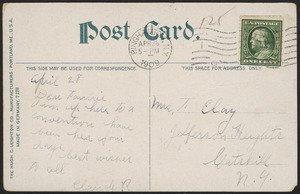 Post Card.
125
BINGHAMTON, N.Y.
APR 28
5-PM
1909
ONE CENT
THIS SPACE MAY BE USED FOR CORRESPONDENCE.
THIS SPACE FOR ADDRESS ONLY.
THE HUGH C. LEIGHTON CO., MANUFACTURERS, PORTLAND, ME., U.S.A.
MADE IN GERMANY.
April 28
Dear
I am up here to a
convention have
been here
since
best wishes
to all
Mrs. T. Clay
Jefferson Heights
Catskill
N.Y.